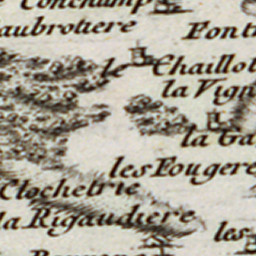 aubrotiere
Font
le Chaillot
la Vign
la Ga
les Fougere
Clochetrie
la Rigaudiere
les